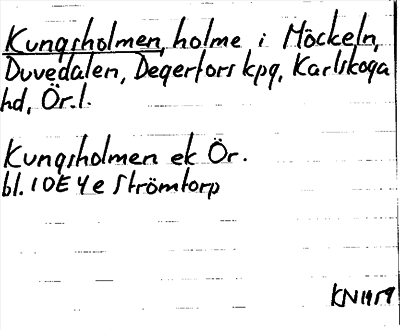 Kungsholmen, holme i Möckeln,
Duvedalen, Degerfors kpg, Karlskoga
hd, Ör.l.
Kungsholmen ek Ör.
bl. 10E 4e Strömtorp